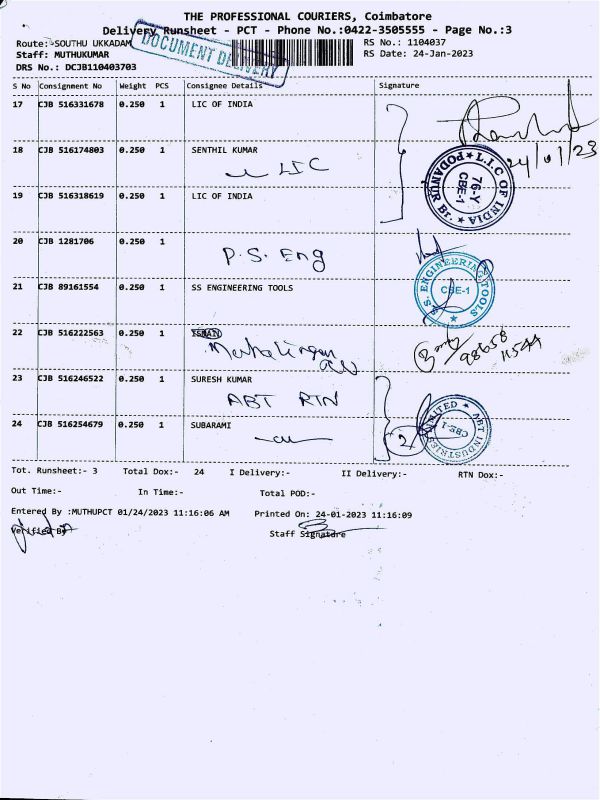 THE PROFESSIONAL COURIERS, Coimbatore
Delivery Runsheet - PCT - Phone No.:0422-3505555 - Page No.:3
Route:-SOUTHU UKKADAM
DOCUMENT DELIVERY
RS No.: 1104037
Staff: MUTHUKUMAR
RS Date: 24-Jan-2023
DRS No.: DCJB110403703
S No Consignment No Weight PCS Consignee Details Signature
17 CJB 516331678 0.250 1 LIC OF INDIA
24/01/23
18 CJB 516174803 0.250 1 SENTHIL KUMAR
LIC
L.I.C OF INDIA
76-Y
CBE-1
PODANUR Br.
19 CJB 516318619 0.250 1 LIC OF INDIA
20 CJB 1281706 0.250 1
P.S. Eng
21 CJB 89161554 0.250 1 SS ENGINEERING TOOLS
S.S. ENGINEERING TOOLS
CBE-1
22 CJB 516222563 0.250 1
98658
11544
23 CJB 516246522 0.250 1 SURESH KUMAR
ABT RTN
24 CJB 516254679 0.250 1 SUBARAMI
2
ABT INDUSTRIES LIMITED
CBE-1
Tot. Runsheet:- 3 Total Dox:- 24 I Delivery:- II Delivery:- RTN Dox:-
Out Time:- In Time:- Total POD:-
Entered By :MUTHUPCT 01/24/2023 11:16:06 AM Printed On: 24-01-2023 11:16:09
Verified By
Staff Signature